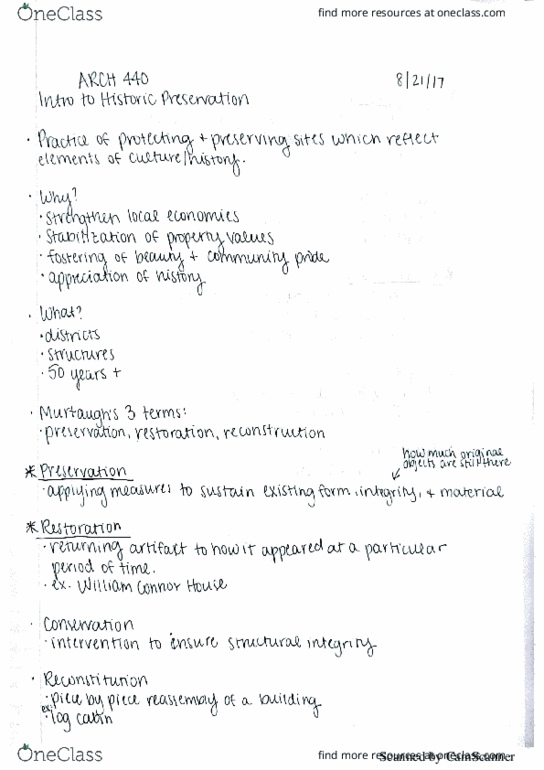 OneClass
find more resources at oneclass.com
ARCH 440
8/21/17
Intro to Historic Preservation
· Practice of protecting + preserving sites which reflect
elements of culture/history.
· Why?
· Strengthen local economies
· Stabilization of property values
· fostering of beauty + community pride
· appreciation of history
· What?
· districts
· structures
· 50 years +
· Murtaugh's 3 terms:
· preservation, restoration, reconstruction
how much original
objects are still there
* Preservation
· applying measures to sustain existing form, integrity, + material
* Restoration
· returning artifact to how it appeared at a particular
period of time.
· ex. William Connor House
· Conservation
· intervention to ensure structural integrity
· Reconstitution
· piece by piece reassembly of a building
ex: · log cabin
OneClass
find more resources at oneclass.com
Scanned by CamScanner